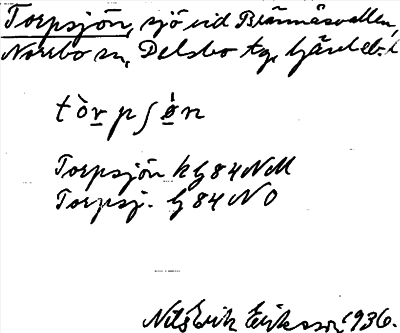 Torpsjön, sjö vid Brännåsvallen,
Norrbo sn, Delsbo tg,
tòrpʃö́n
Torpsjön kg 84 NM
Torpsj. g 84 NO
Nils Erik Eriksson 1936.